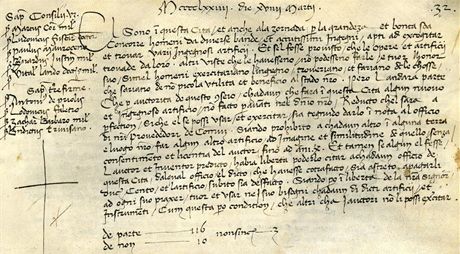 Mcccclxxiiii. Die xviiii Martii.
32.
Sap Consilii
Ludovicus
Paulus
El Sono in questa Cita, et anche ala zornada, per la grandeza, et bonta soa
Concorre homeni da diverse bande, et acutissimi ingegni, apti ad excogitar
et trovar varij ingegnosi artificij. Et sel fosse provisto, che le opere et artificij
trovade da loro, altri viste che le havesseno, no podesseno farle, et tuor lhonor
suo, simel homeni exercitariano lingegno, troveriano, et fariano dele chosse
che sariano de no picola utilita et beneficio al stado nro. Pero Landara parte
Che p auctorita de questo Conseio, chadaun che fara i questa Cita algun nuovo
et ingegnoso artificio, no facto p avanti nel Dnio nro, Reducto chel sara a
pfection, Siche el se possi usar, et exercitar, sia tegnudo darlo i nota al officio
di nri Provededori de Comun, Siando prohibito a chadaun altro i alguna terra
e luogo nro, far algun altro artificio, ad imagine et similitudine de quello, senza
consentimento et licentia del auctor, fino ad ani x. Et tamen se algun el fesse,
Lauctor et inventor predicto, habia liberta poderlo citar a chadaun officio de
questa Cita, dalqual officio el dicto, che havesse cotrafacto, sia astreto, apagarli
duc Cento, et lartificio, subito sia desfacto. Siando po i liberta de la nra Signoria
ad ogni suo piaxer, tuor et usar ne i suo bisogni chadaun di dicti artificij, et
instrumeti, Cum questa po condition, che altri cha i auctori no li possi exercitar.
Sap tre firme
de parte 116
de non 10
nonsince 3